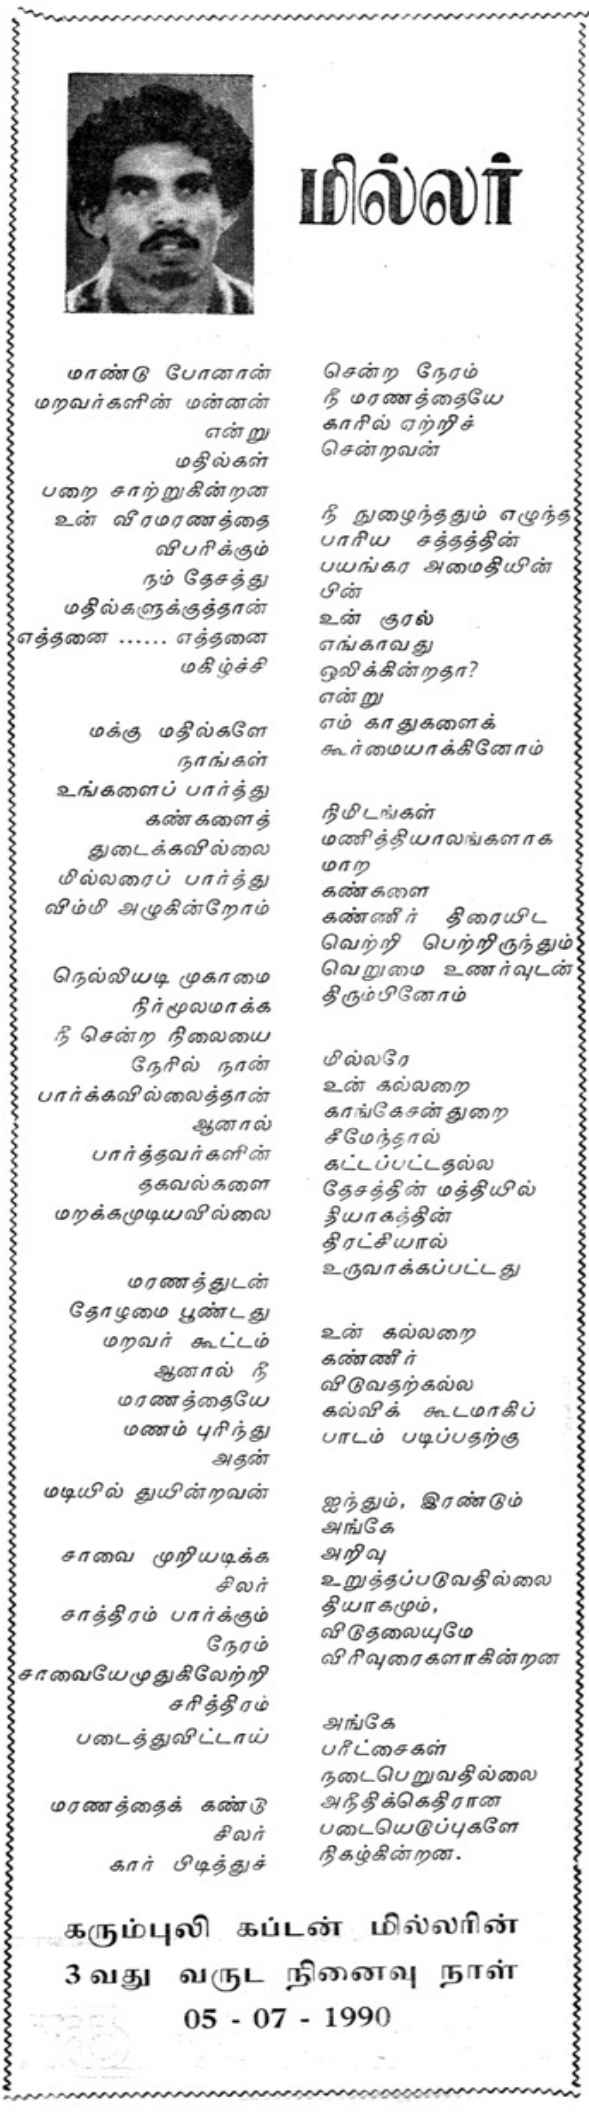 மில்லர்
மாண்டு போனான்
மறவர்களின் மன்னன்
என்று
மதில்கள்
பறை சாற்றுகின்றன
உன் வீரமரணத்தை
விபரிக்கும்
நம் தேசத்து
மதில்களுக்குத்தான்
எத்தனை ...... எத்தனை
மகிழ்ச்சி
மக்கு மதில்களே
நாங்கள்
உங்களைப் பார்த்து
கண்களைத்
துடைக்கவில்லை
மில்லரைப் பார்த்து
விம்மி அழுகின்றோம்
நெல்லியடி முகாமை
நிர்மூலமாக்க
நீ சென்ற நிலையை
நேரில் நான்
பார்க்கவில்லைத்தான்
ஆனால்
பார்த்தவர்களின்
தகவல்களை
மறக்கமுடியவில்லை
மரணத்துடன்
தோழமை பூண்டது
மறவர் கூட்டம்
ஆனால் நீ
மரணத்தையே
மணம் புரிந்து
அதன்
மடியில் துயின்றவன்
சாவை முறியடிக்க
சிலர்
சாத்திரம் பார்க்கும்
நேரம்
சாவையேமுதுகிலேற்றி
சரித்திரம்
படைத்துவிட்டாய்
மரணத்தைக் கண்டு
சிலர்
கார் பிடித்துச்
சென்ற நேரம்
நீ மரணத்தையே
காரில் ஏற்றிச்
சென்றவன்
நீ நுழைந்ததும் எழுந்த
பாரிய சத்தத்தின்
பயங்கர அமைதியின்
பின்
உன் குரல்
எங்காவது
ஒலிக்கின்றதா?
என்று
எம் காதுகளைக்
கூர்மையாக்கினோம்
நிமிடங்கள்
மணித்தியாலங்களாக
மாற
கண்களை
கண்ணீர் திரையிட
வெற்றி பெற்றிருந்தும்
வெறுமை உணர்வுடன்
திரும்பினோம்
மில்லரே
உன் கல்லறை
காங்கேசன்துறை
சீமேந்தால்
கட்டப்பட்டதல்ல
தேசத்தின் மத்தியில்
தியாகத்தின்
திரட்சியால்
உருவாக்கப்பட்டது
உன் கல்லறை
கண்ணீர்
விடுவதற்கல்ல
கல்விக் கூடமாகிப்
பாடம் படிப்பதற்கு
ஐந்தும், இரண்டும்
அங்கே
அறிவு
உறுத்தப்படுவதில்லை
தியாகமும்,
விடுதலையுமே
விரிவுரைகளாகின்றன
அங்கே
பரீட்சைகள்
நடைபெறுவதில்லை
அநீதிக்கெதிரான
படையெடுப்புகளே
நிகழ்கின்றன.
கரும்புலி கப்டன் மில்லரின்
3 வது வருட நினைவு நாள்
05 - 07 - 1990